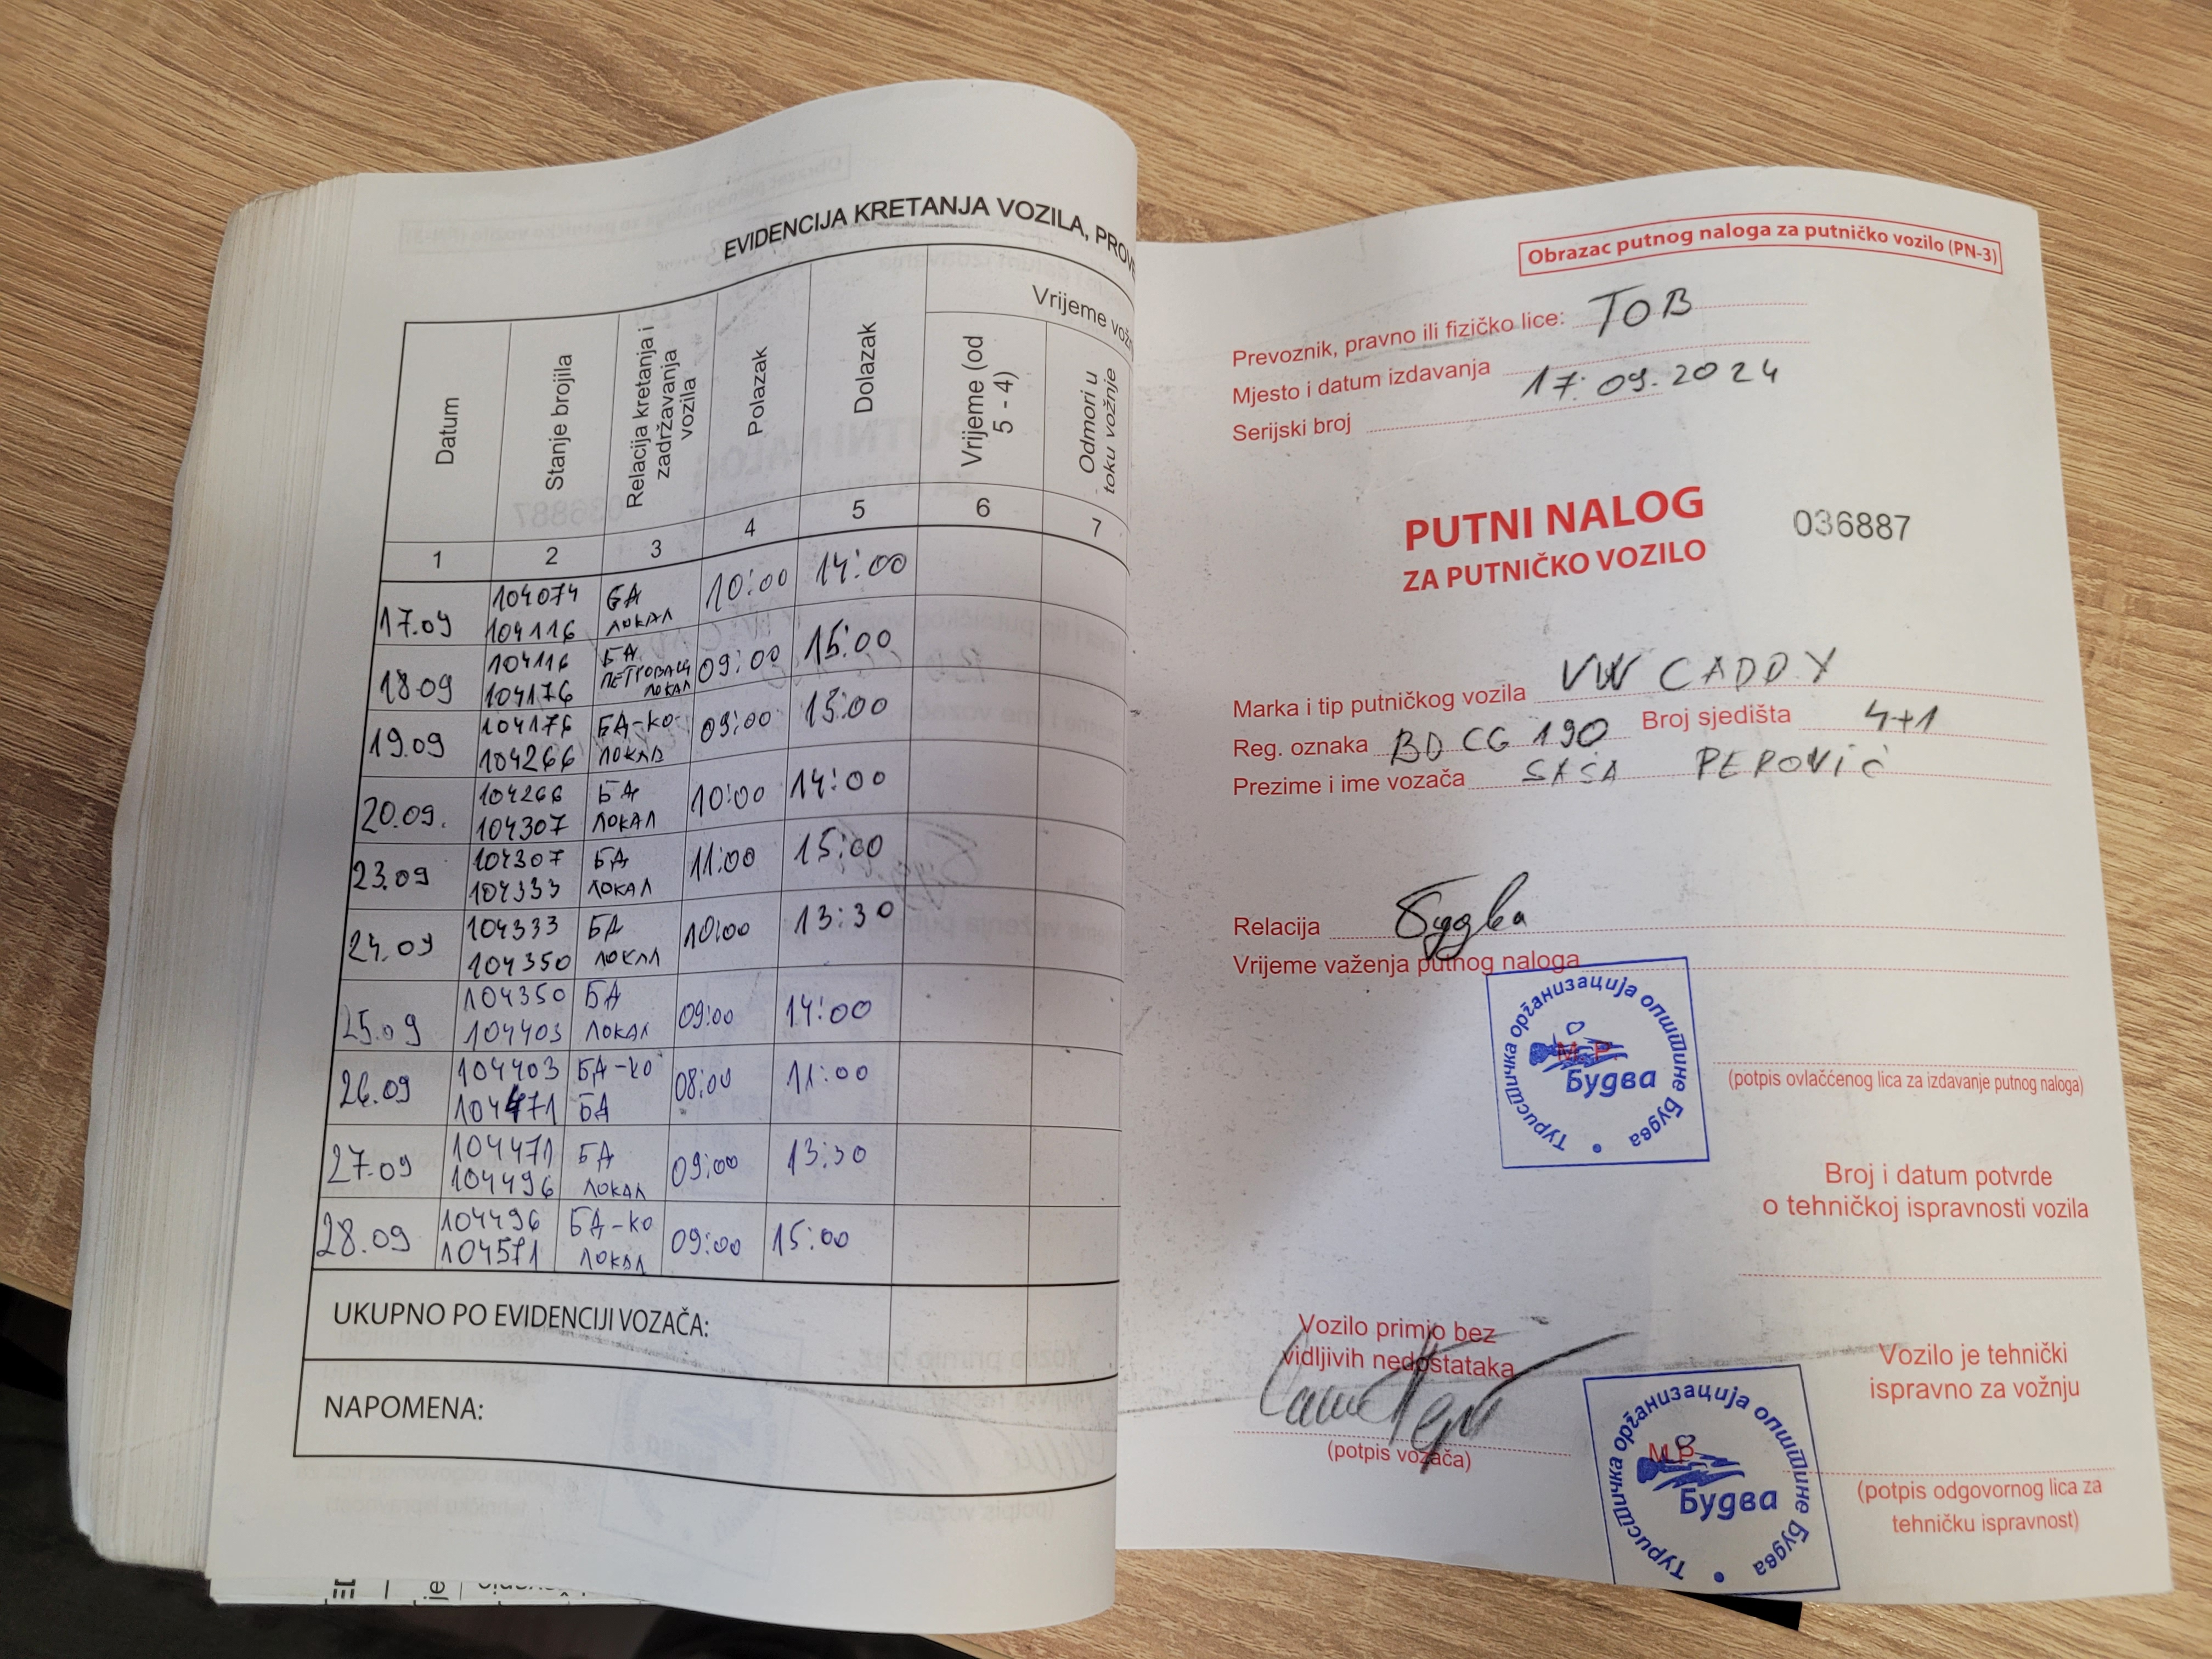 EVIDENCIJA KRETANJA VOZILA, PROVE
Datum
Stanje brojila
Relacija kretanja i zadržavanja vozila
Polazak
Dolazak
Vrijeme vožnj
Vrijeme (od 5 - 4)
Odmori u toku vožnje
1 2 3 4 5 6 7
17.09 104074 104116 БА ЛОКАЛ 10:00 14:00
18.09 104116 104176 БА ПЕТРОВАЦ ЛОКАЛ 09:00 15:00
19.09 104176 104266 БА-КО ЛОКАЛ 09:00 15:00
20.09. 104266 104307 БА ЛОКАЛ 10:00 14:00
23.09 104307 104333 БА ЛОКАЛ 11:00 15:00
24.09 104333 104350 БА ЛОКАЛ 10:00 13:30
25.09 104350 104403 БА ЛОКАЛ 09:00 14:00
26.09 104403 104471 БА-КО БА 08:00 11:00
27.09 104471 104496 БА ЛОКАЛ 09:00 13:30
28.09 104496 104571 БА-КО ЛОКАЛ 09:00 15:00
UKUPNO PO EVIDENCIJI VOZAČA:
NAPOMENA:
Obrazac putnog naloga za putničko vozilo (PN-3)
Prevoznik, pravno ili fizičko lice: TOB
Mjesto i datum izdavanja 17.09.2024
Serijski broj
PUTNI NALOG 036887
ZA PUTNIČKO VOZILO
Marka i tip putničkog vozila VW CADDY
Reg. oznaka BD CG 190 Broj sjedišta 4+1
Prezime i ime vozača SAŠA PEROVIĆ
Relacija Будва
Vrijeme važenja putnog naloga
Туристичка организација општине Будва
M.P.
Будва
(potpis ovlaččenog lica za izdavanje putnog naloga)
Broj i datum potvrde
o tehničkoj ispravnosti vozila
Vozilo primio bez
vidljivih nedostataka
(potpis vozača)
Vozilo je tehnički
ispravno za vožnju
Туристичка организација општине Будва
M.P.
Будва
(potpis odgovornog lica za
tehničku ispravnost)